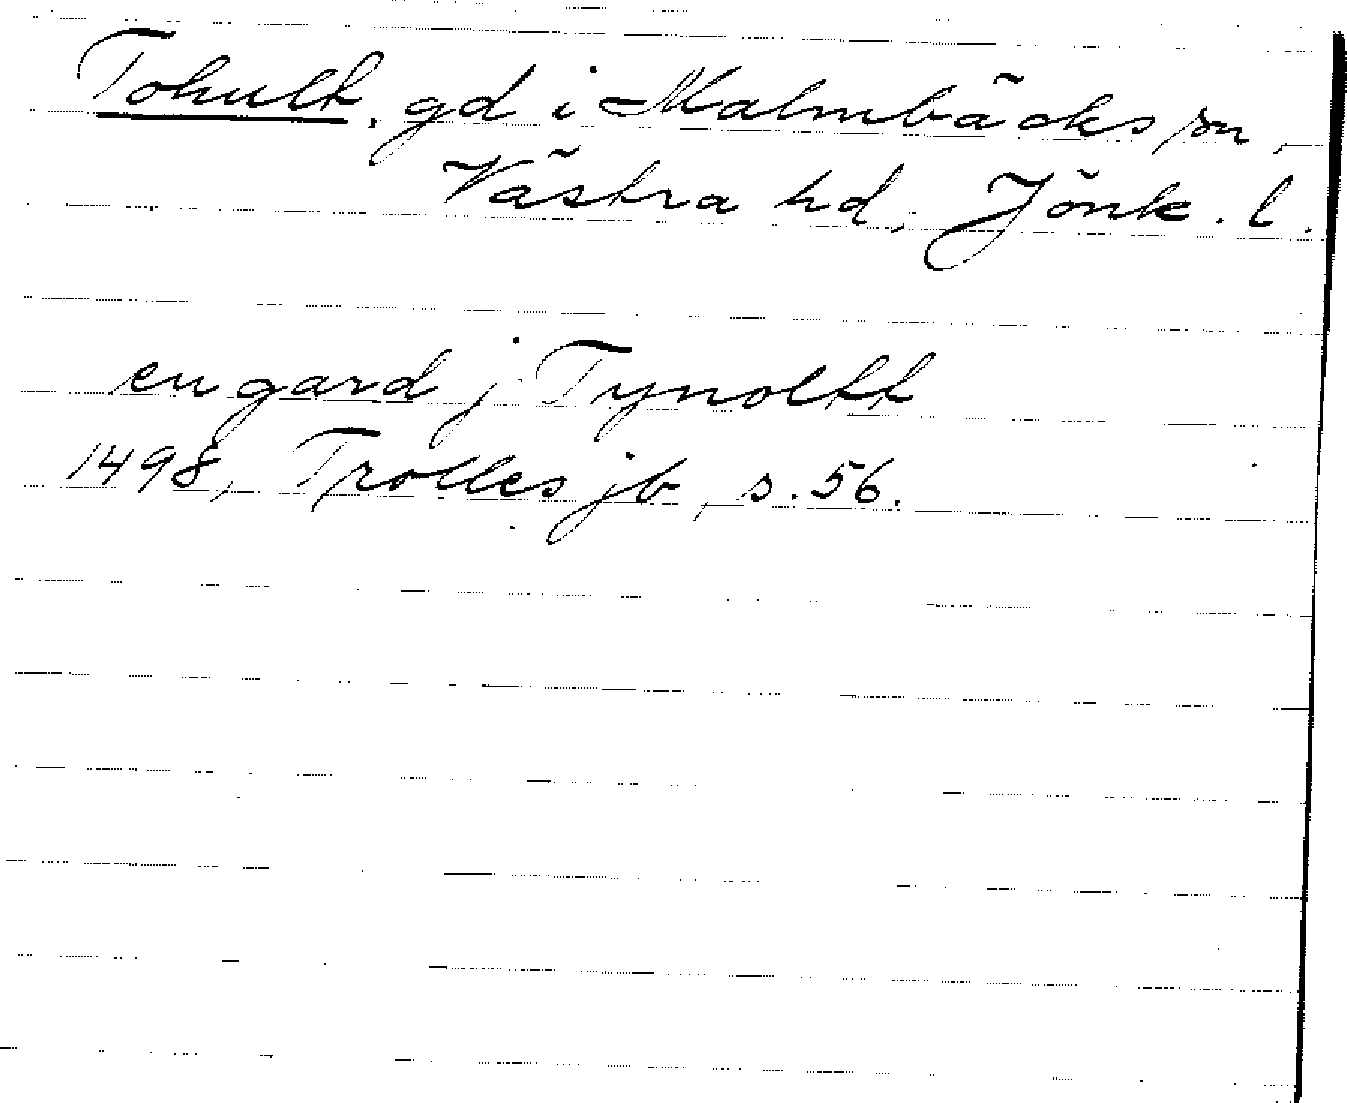 Tohult, gd i Malmbäcks sn,
Västra hd, Jönk. l.
en gard j Tynoltt
1498, Trolles jb, s. 56.